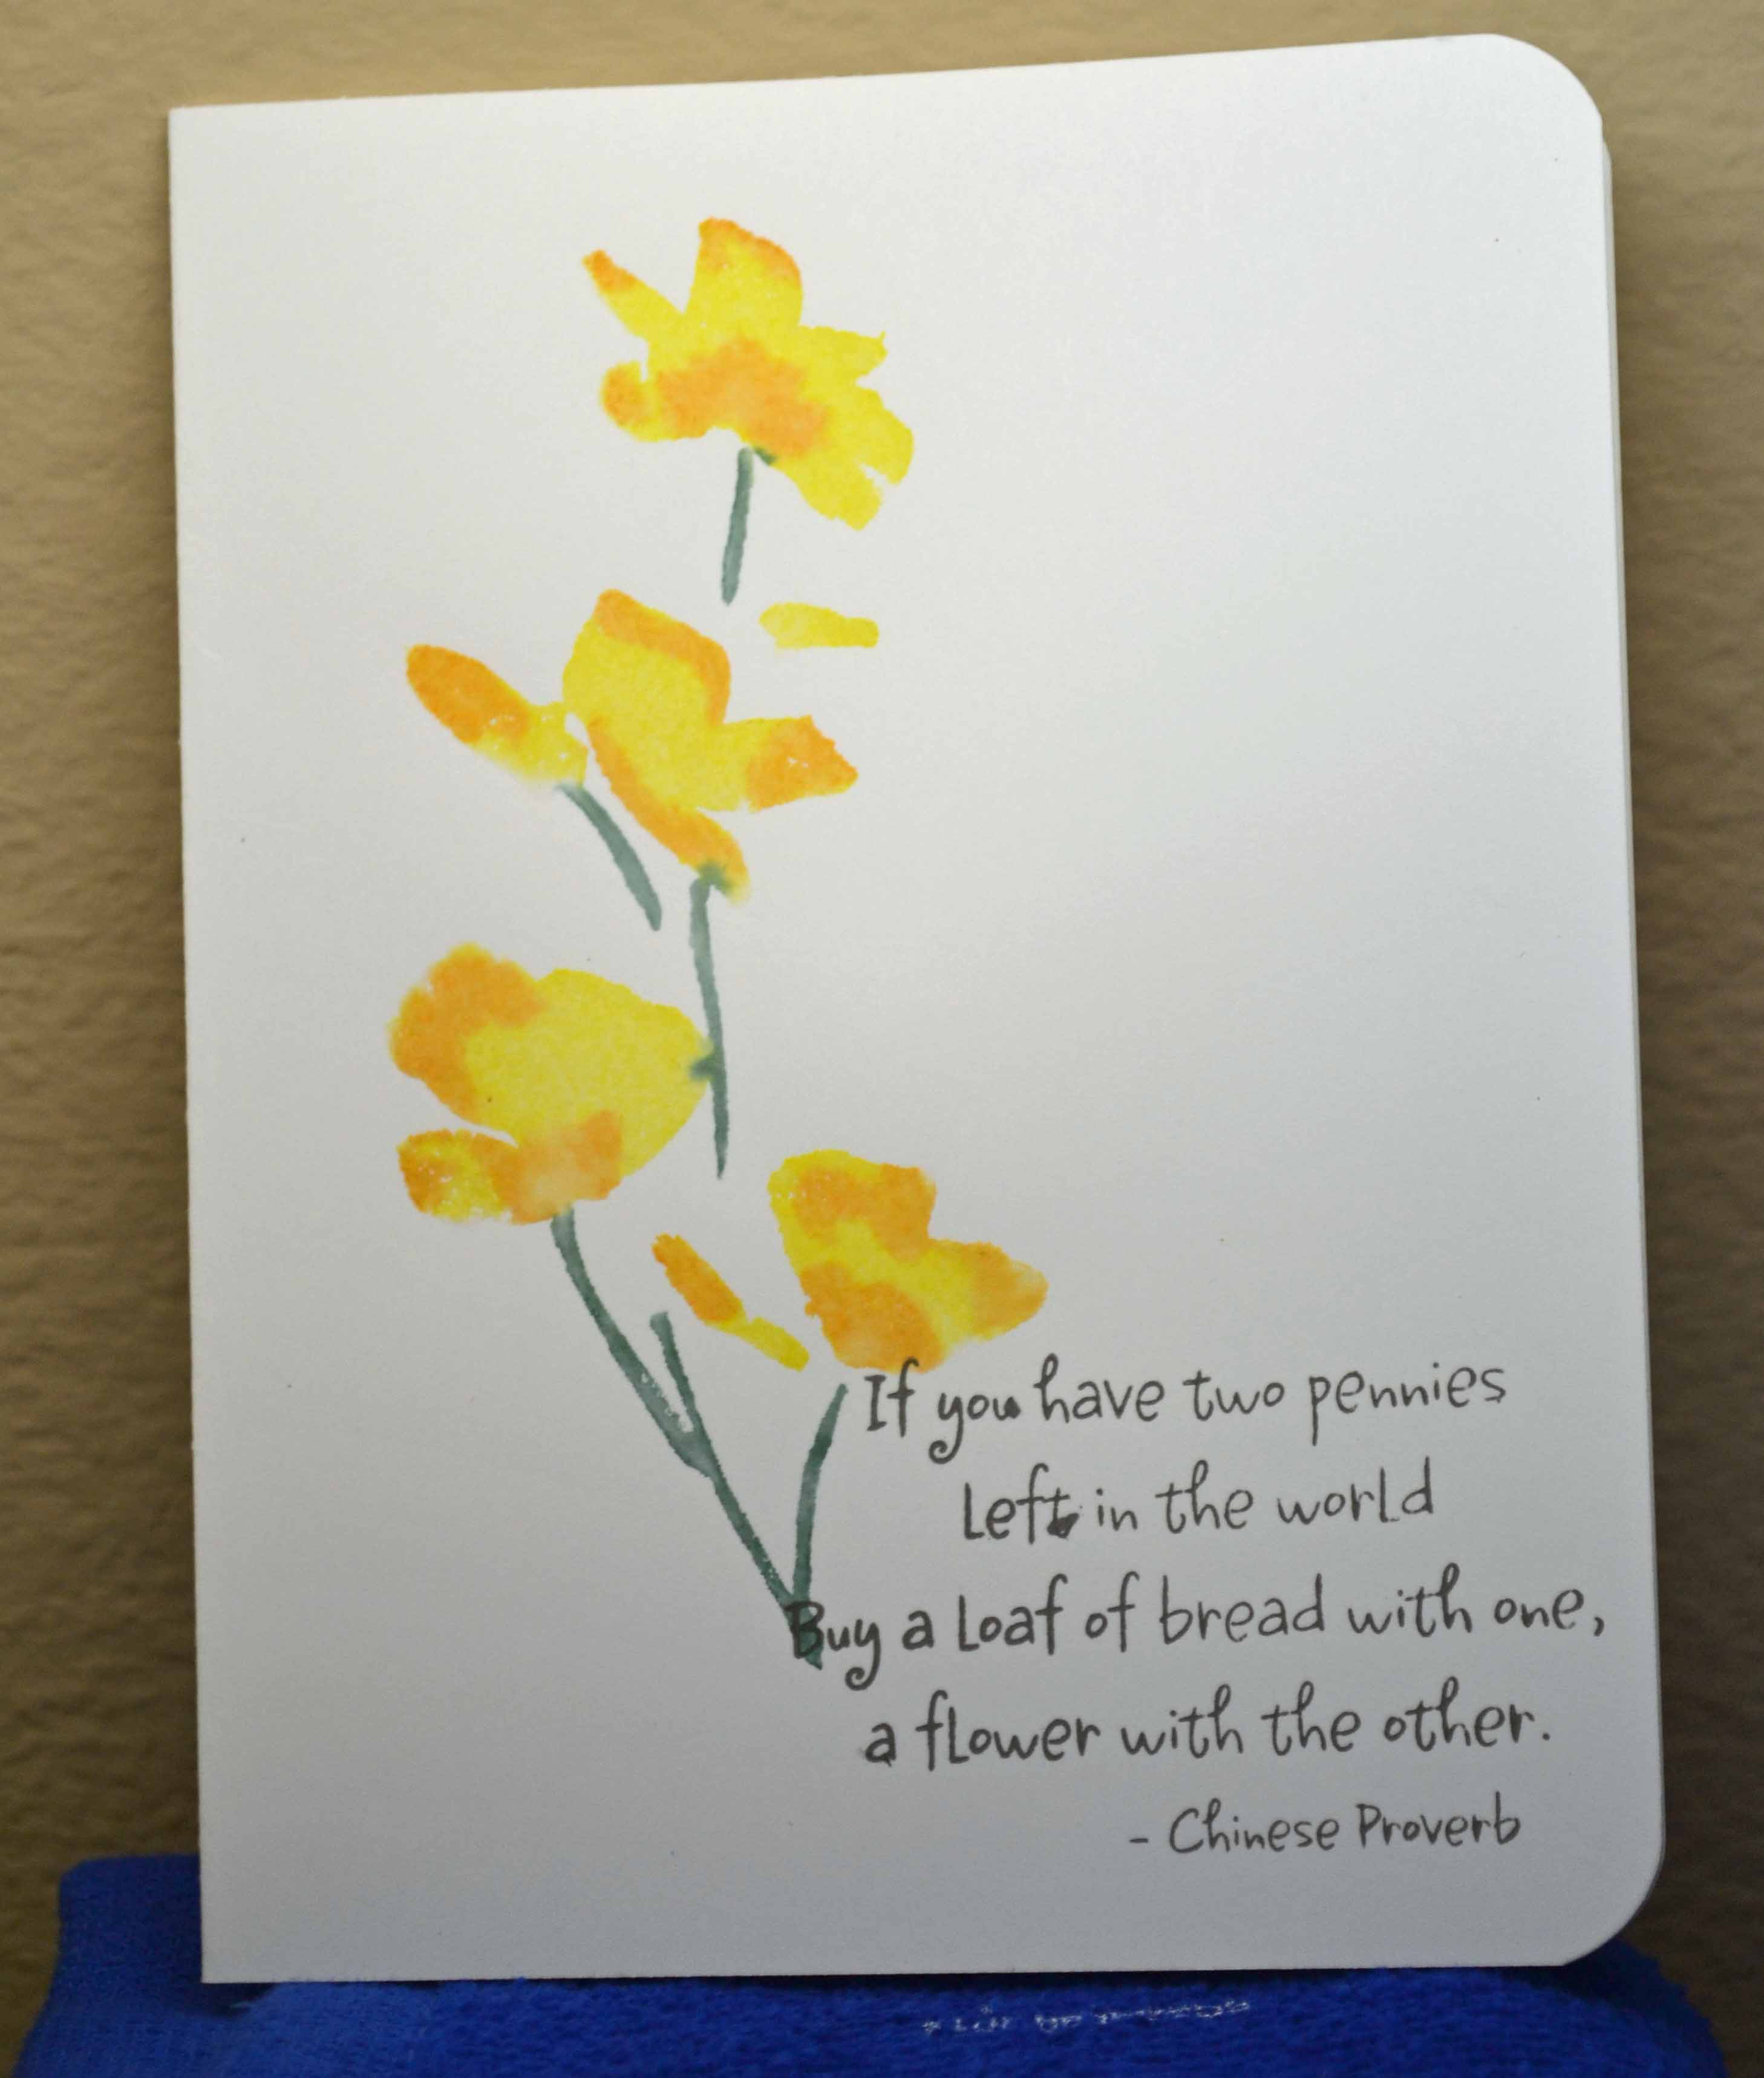 If you have two pennies
Left in the world
Buy a Loaf of bread with one,
a flower with the other.
- Chinese Proverb